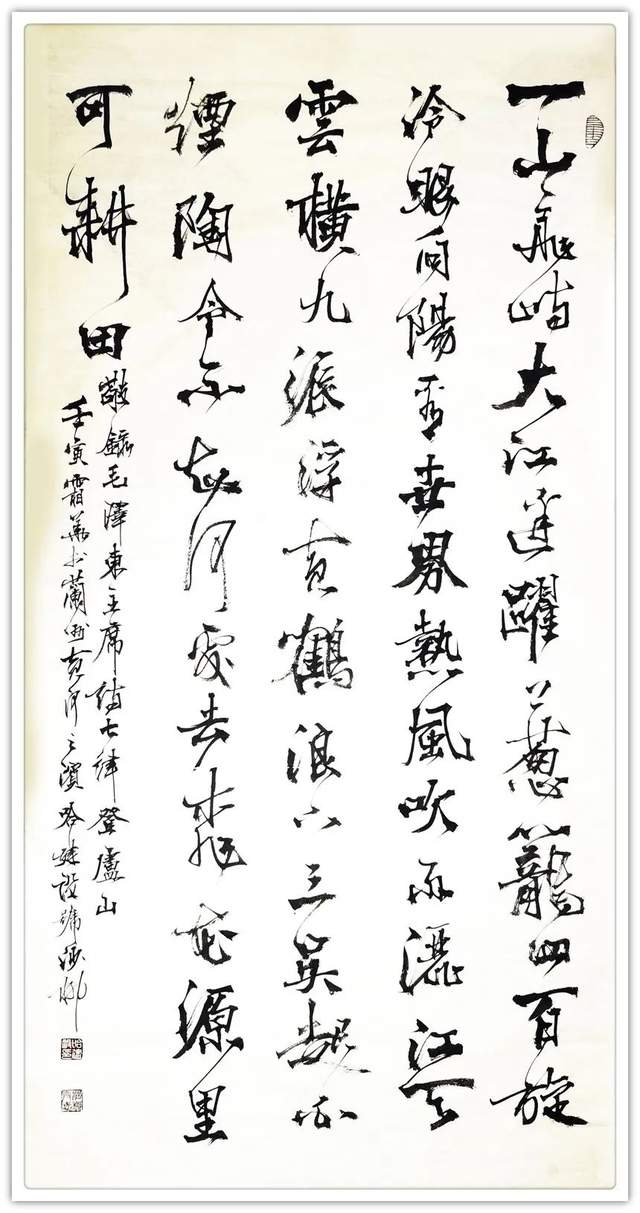 一山飛峙大江邊躍上葱籠四百旋
冷眼向陽看世界熱風吹雨灑江天
雲橫九派浮黃鶴浪下三吳起白
煙陶令不知何處去桃花源里
可耕田
敬錄毛澤東主席詩七律登盧山
壬寅霜華於蘭州黃河之濱哈建設號